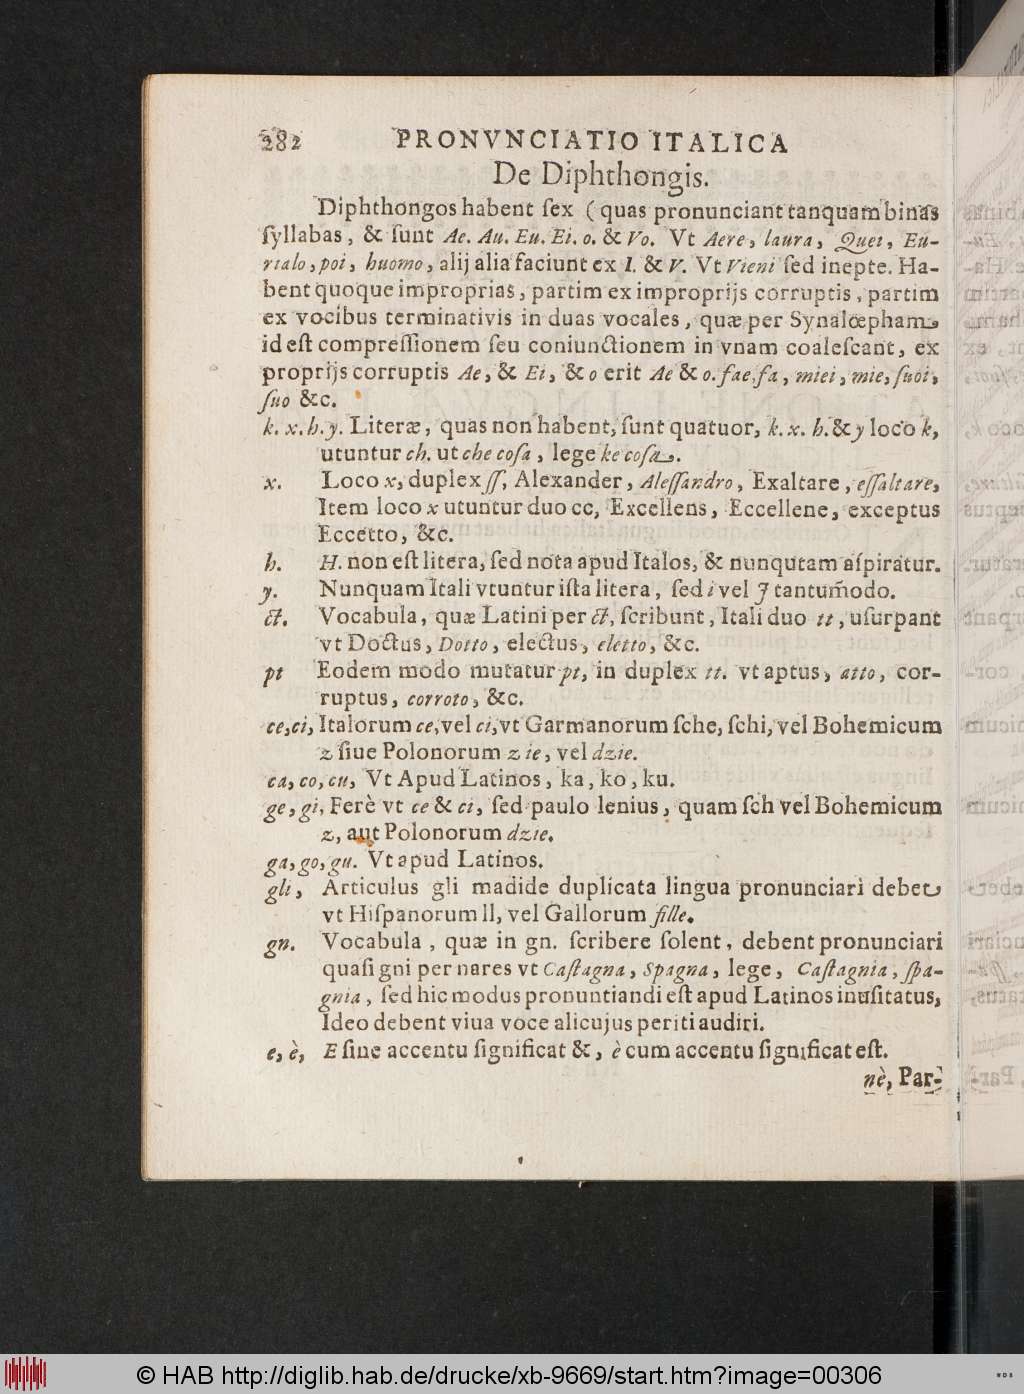 282 PRONVNCIATIO ITALICA
De Diphthongis.
Diphthongos habent ſex ( quas pronunciant tanquam binas
ſyllabas, & ſunt Ae. Au. Eu. Ei. o. & Vo. Vt Aere, laura, Quei, Eu-
rialo, poi, huomo, alij alia faciunt ex I. & V. Vt Vieni ſed inepte. Ha-
bent quoque improprias, partim ex improprijs corruptis, partim
ex vocibus terminativis in duas vocales, quæ per Synalœpham
id eſt compreſſionem ſeu coniunctionem in vnam coaleſcant, ex
proprijs corruptis Ae, & Ei, & o erit Ae & o. fae, fa, miei, mie, ſuoi,
ſuo &c.
k. x. h. y. Literæ, quas non habent, ſunt quatuor, k. x. h. & y loco k,
utuntur ch. ut che coſa, lege ke coſa.
x. Loco x, duplex ſſ, Alexander, Aleſſandro, Exaltare, eſſaltare,
Item loco x utuntur duo cc, Excellens, Eccellene, exceptus
Eccetto, &c.
h. H. non eſt litera, ſed nota apud Italos, & nunqutam aſpiratur.
y. Nunquam Itali vtuntur iſta litera, ſed i vel J tantum̃odo.
ct. Vocabula, quæ Latini per ct, ſcribunt, Itali duo tt, uſurpant
vt Doctus, Dotto, electus, eletto, &c.
pt Eodem modo mutatur pt, in duplex tt. vt aptus, atto, cor-
ruptus, corroto, &c.
ce, ci, Italorum ce, vel ci, vt Garmanorum ſche, ſchi, vel Bohemicum
z ſiue Polonorum z ie, vel dzie.
ca, co, cu, Vt Apud Latinos, ka, ko, ku.
ge, gi, Ferè vt ce & ci, ſed paulo lenius, quam ſch vel Bohemicum
z, aut Polonorum dzie.
ga, go, gu. Vt apud Latinos.
gli, Articulus gli madide duplicata lingua pronunciari debet
vt Hiſpanorum ll, vel Gallorum fille.
gn. Vocabula, quæ in gn. ſcribere ſolent, debent pronunciari
quaſi gni per nares vt Caſtagna, Spagna, lege, Caſtagnia, ſpa-
gnia, ſed hic modus pronuntiandi eſt apud Latinos inuſitatus,
Ideo debent viua voce alicujus periti audiri.
e, è, E ſine accentu ſignificat &, è cum accentu ſignificat eſt.
nè, Par-
© HAB http://diglib.hab.de/drucke/xb-9669/start.htm?image=00306